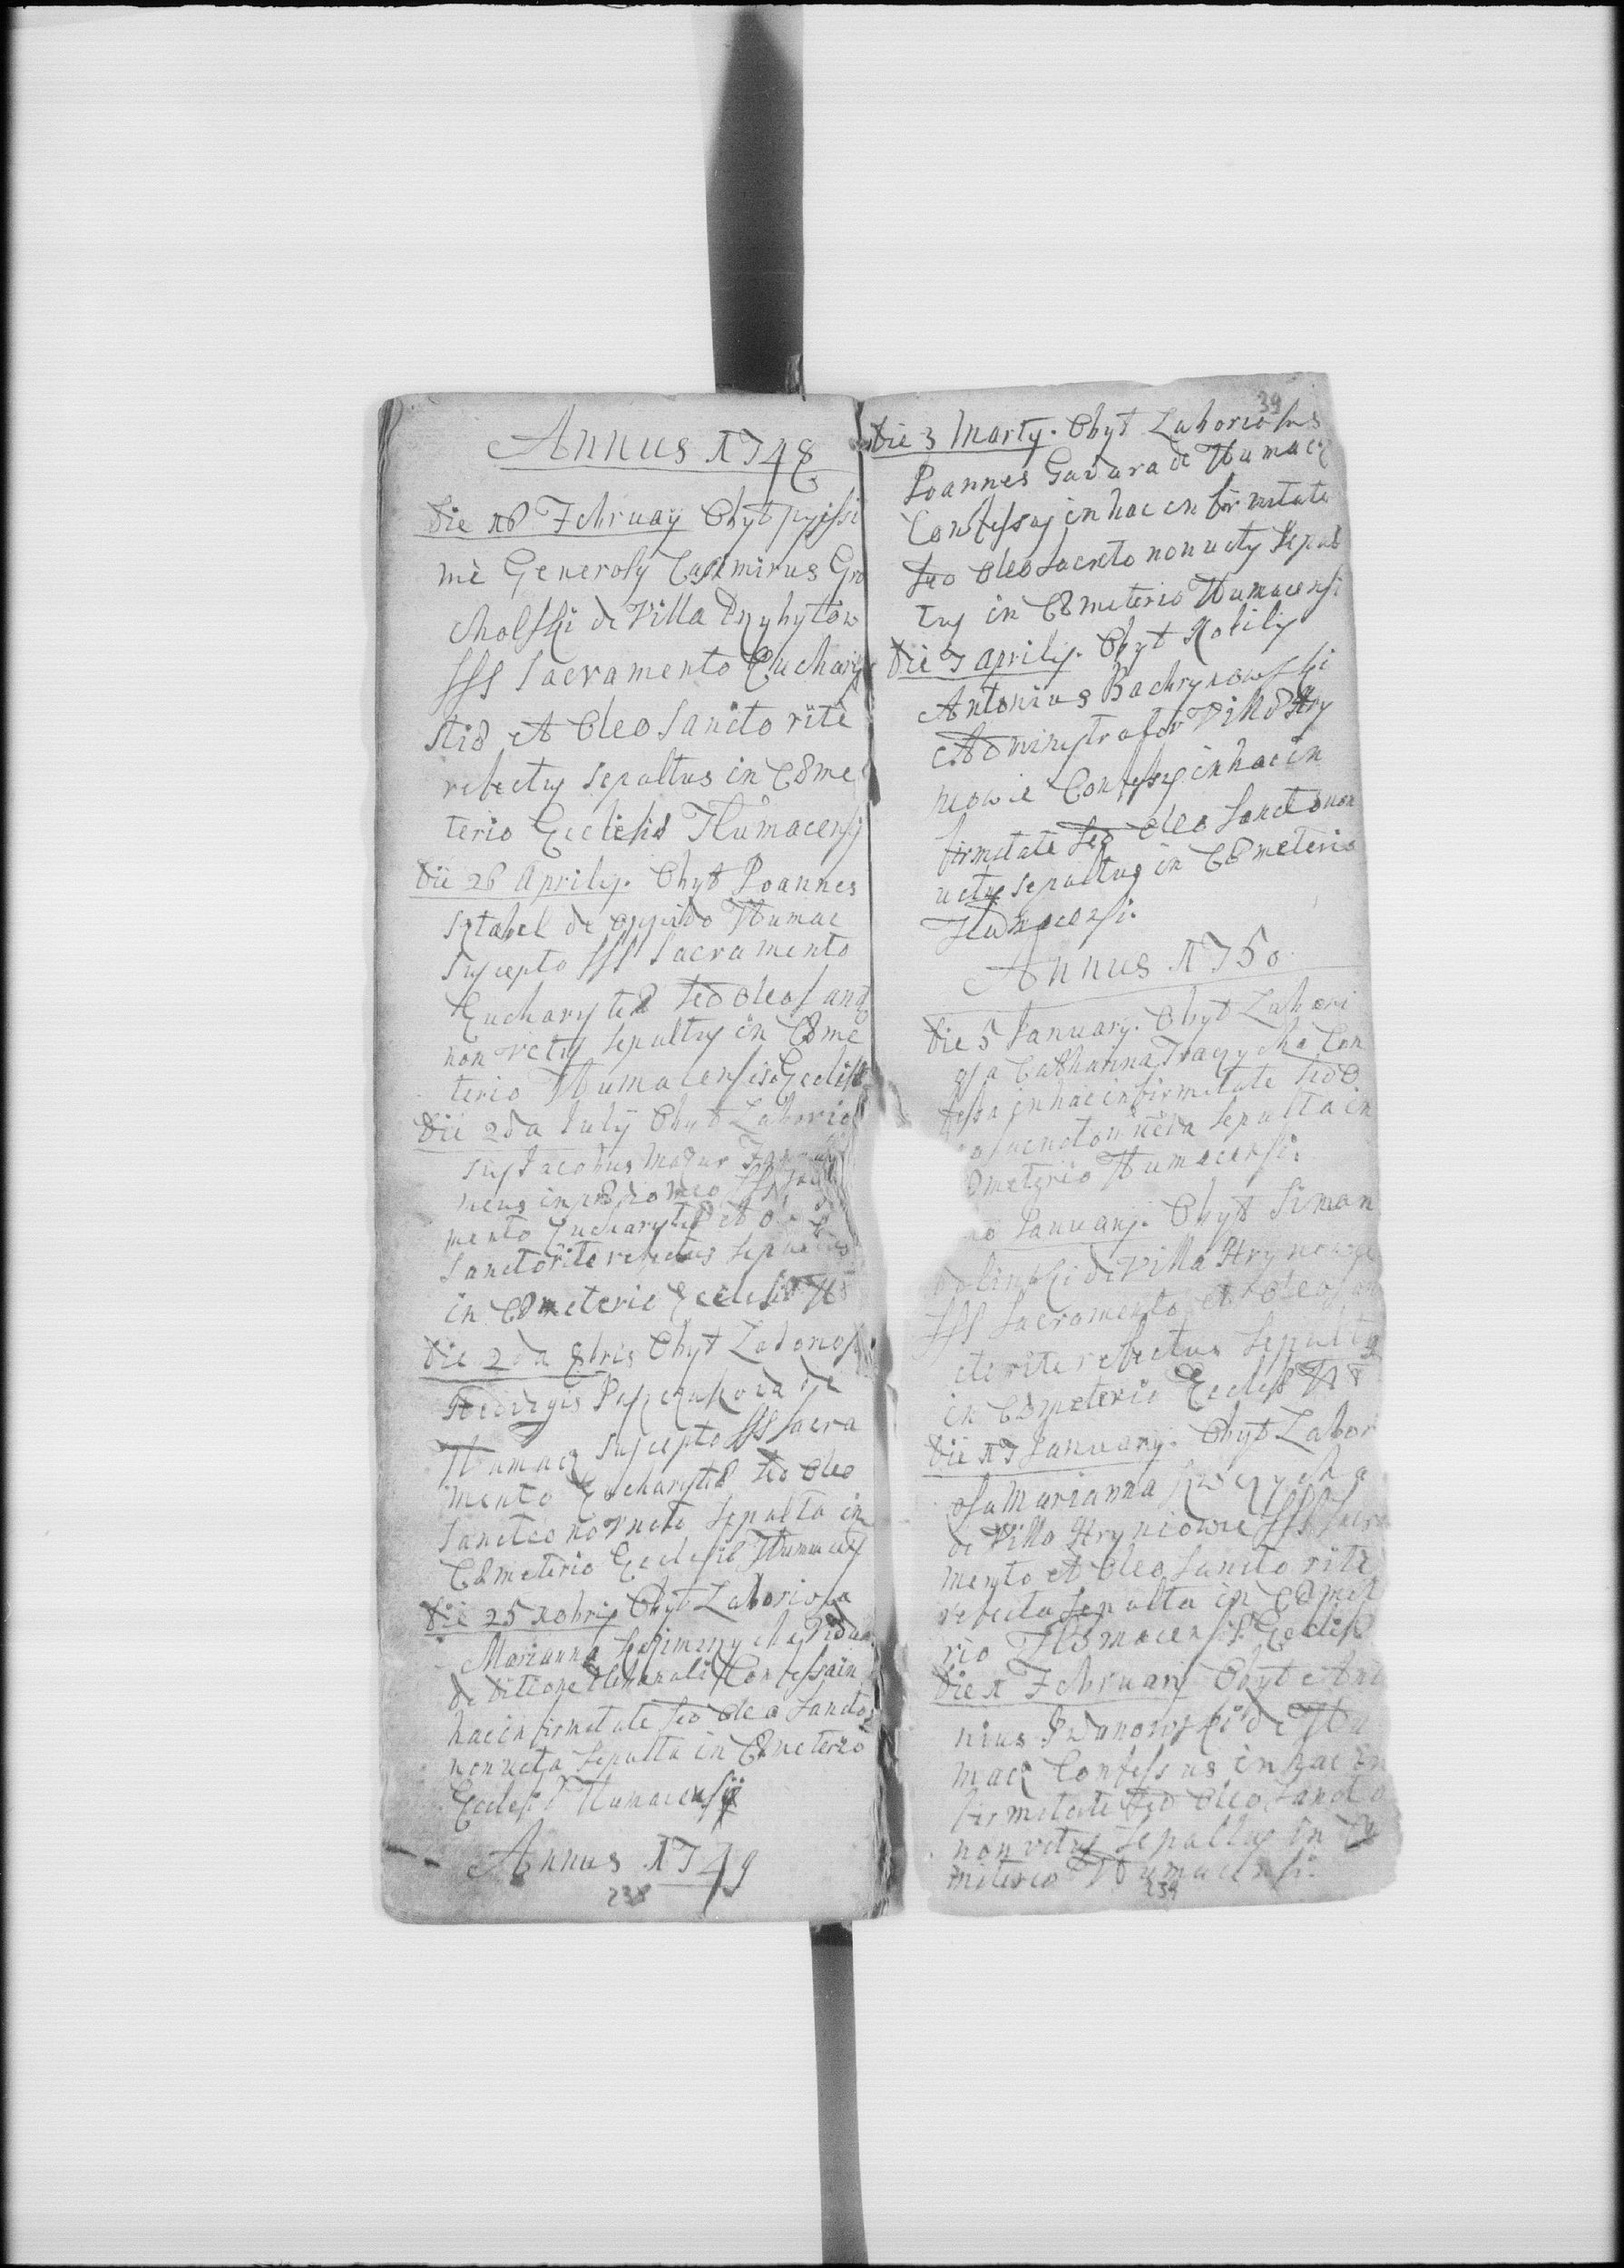 Annus 1748
Die 18 Februarij Obyt pijssi
me Generosq Casimirus Gro
cholski de Villa Przybyłow
SSS Sacramento Euchary
stiæ et Oleo Sancto ritè
refectq sepultus in Cæme
terio Ecclesiæ Tłumacensq
Die 26 Aprilis. Obyt Joannes
de oppido Tłumac
suscepto SSS Sacramento
Eucharystiæ sed Oleo sanct
non vctq sepultq in Cæme
terio Tłumacensis Ecclesiæ
Die 2da July Obyt Laborio
sus Jacobus Mazur
meus in prædio meo SSS Sac
mento Eucharystiæ et
Sancto rite refectus sepultus
in Cæmeterio Ecclesiæ Tł
Die 2da 8bris Obyt Laborios
Hedvigis de
Tłumacz suscepto SSS Sacra
mento Eucharystiæ sed Oleo
Sancto no vncta sepulta in
Cæmeterio Ecclesiæ Tłumacen
Die 25 Xobris Obyt Laboriosa
Marianna vidua
de Confessa in
hac infirmitate sed Oleo Sancto
non ucta sepulta in Cæmeterio
Ecclesiæ Tłumacensis
Annus 1749
238
39
Die 3 Martÿ. Obyt Laboriosus
Joannes Gavura de Tłumacz
Confessq in hac infirmitate
sed Oleo sacrto non uctq sepul
tuq in Cæmeterio Tłumacensi
Die 7 Aprilis. Obyt Nobilis
Antonius Bachrynowski
Administrator Villæ Hry
niowie Confessq in hac in
firmitate sed Oleo Sancto non
uctq sepultus in Cæmeterio
Tłumacensi.
Annus 1750
Die 5 January. Obyt Labori
osa Catharina Con
fessa in hac infirmitate sed O
sancto n ucta sepulta in
meterio Tłumacensi.
January. Obyt Simon
de Villa Hryniowie
SSS Sacramento et Oleo san
cto rite refectus sepultq
in Cæmeterio Ecclesiæ Tł
Die 17 January. Obyt Labor
osa Marianna
de Villa Hryniowie SSS Sacra
mento et Oleo Sancto rite
refecta sepulta in Cæmet
rio Tłumacensis Ecclesiæ
Die 1 Februarij Obyt Anto
nius de Tłu
macz Confessus in hac in
firmitate sed Oleo Sancto
non vctq sepultq in Cæ
miterio Tłumacensi.
239